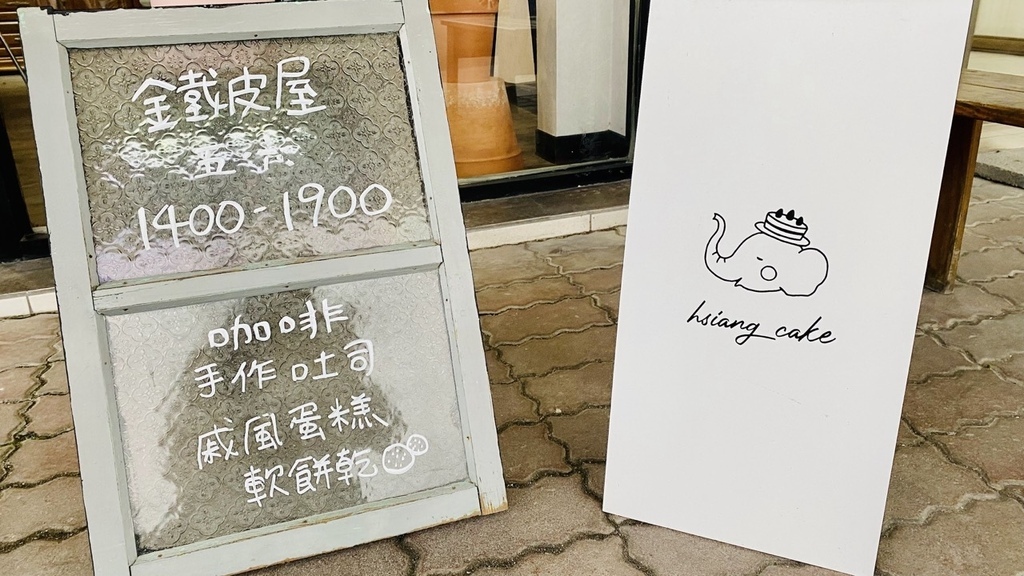 金鐵皮屋
1400-1900
咖啡
手作吐司
戚風蛋糕
軟餅乾
hsiang_cake